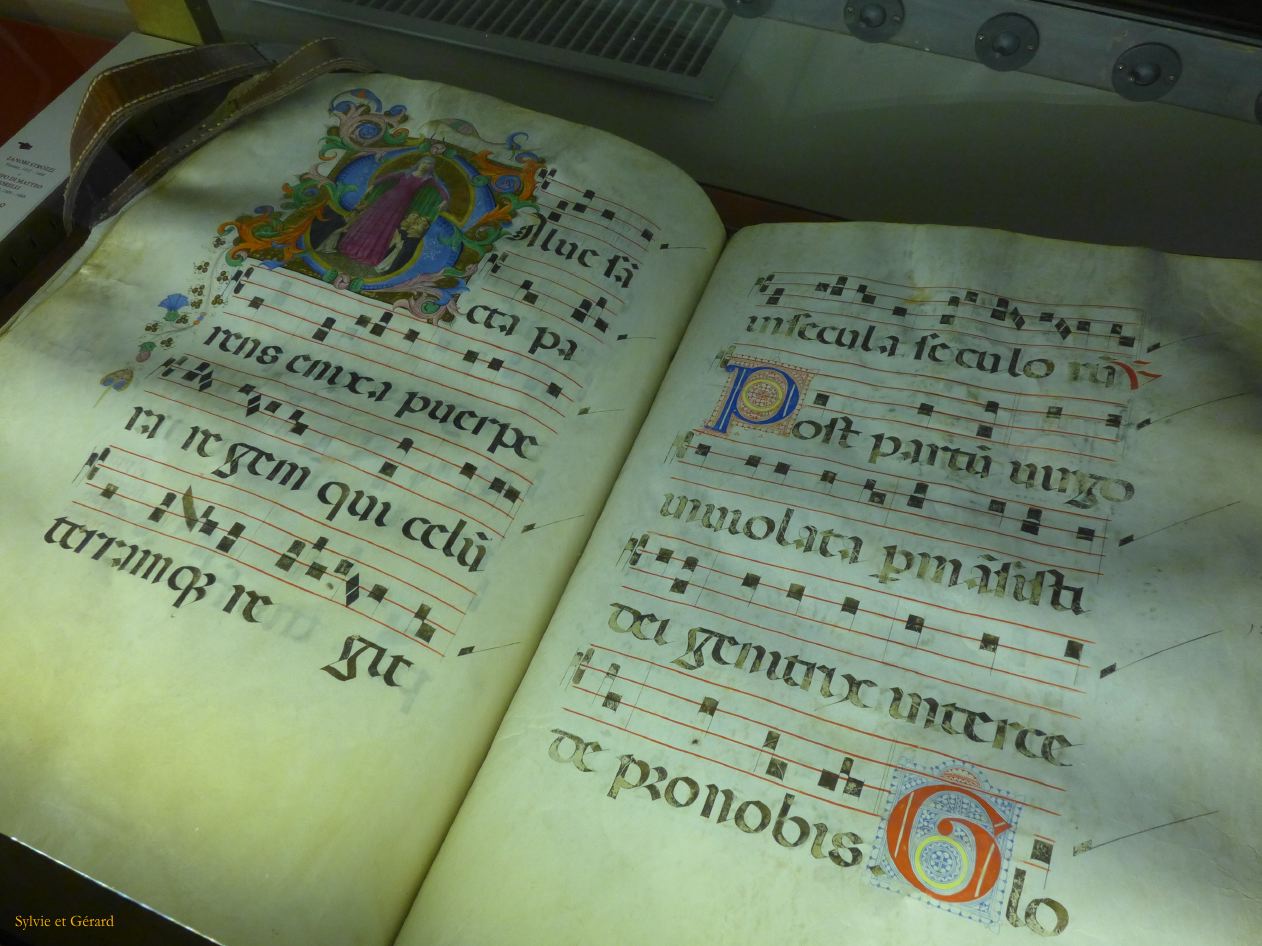 ZANOBI STROZZI
Salue sã
cta pa
rens enixa puerpe
ra re gem qui celũ
terramqꝫ re git
in secula seculo rũ ℣
Post partũ uirgo
inuiolata pmãsisti
dei genitrix interce
de pronobis. Glo
Sylvie et Gérard